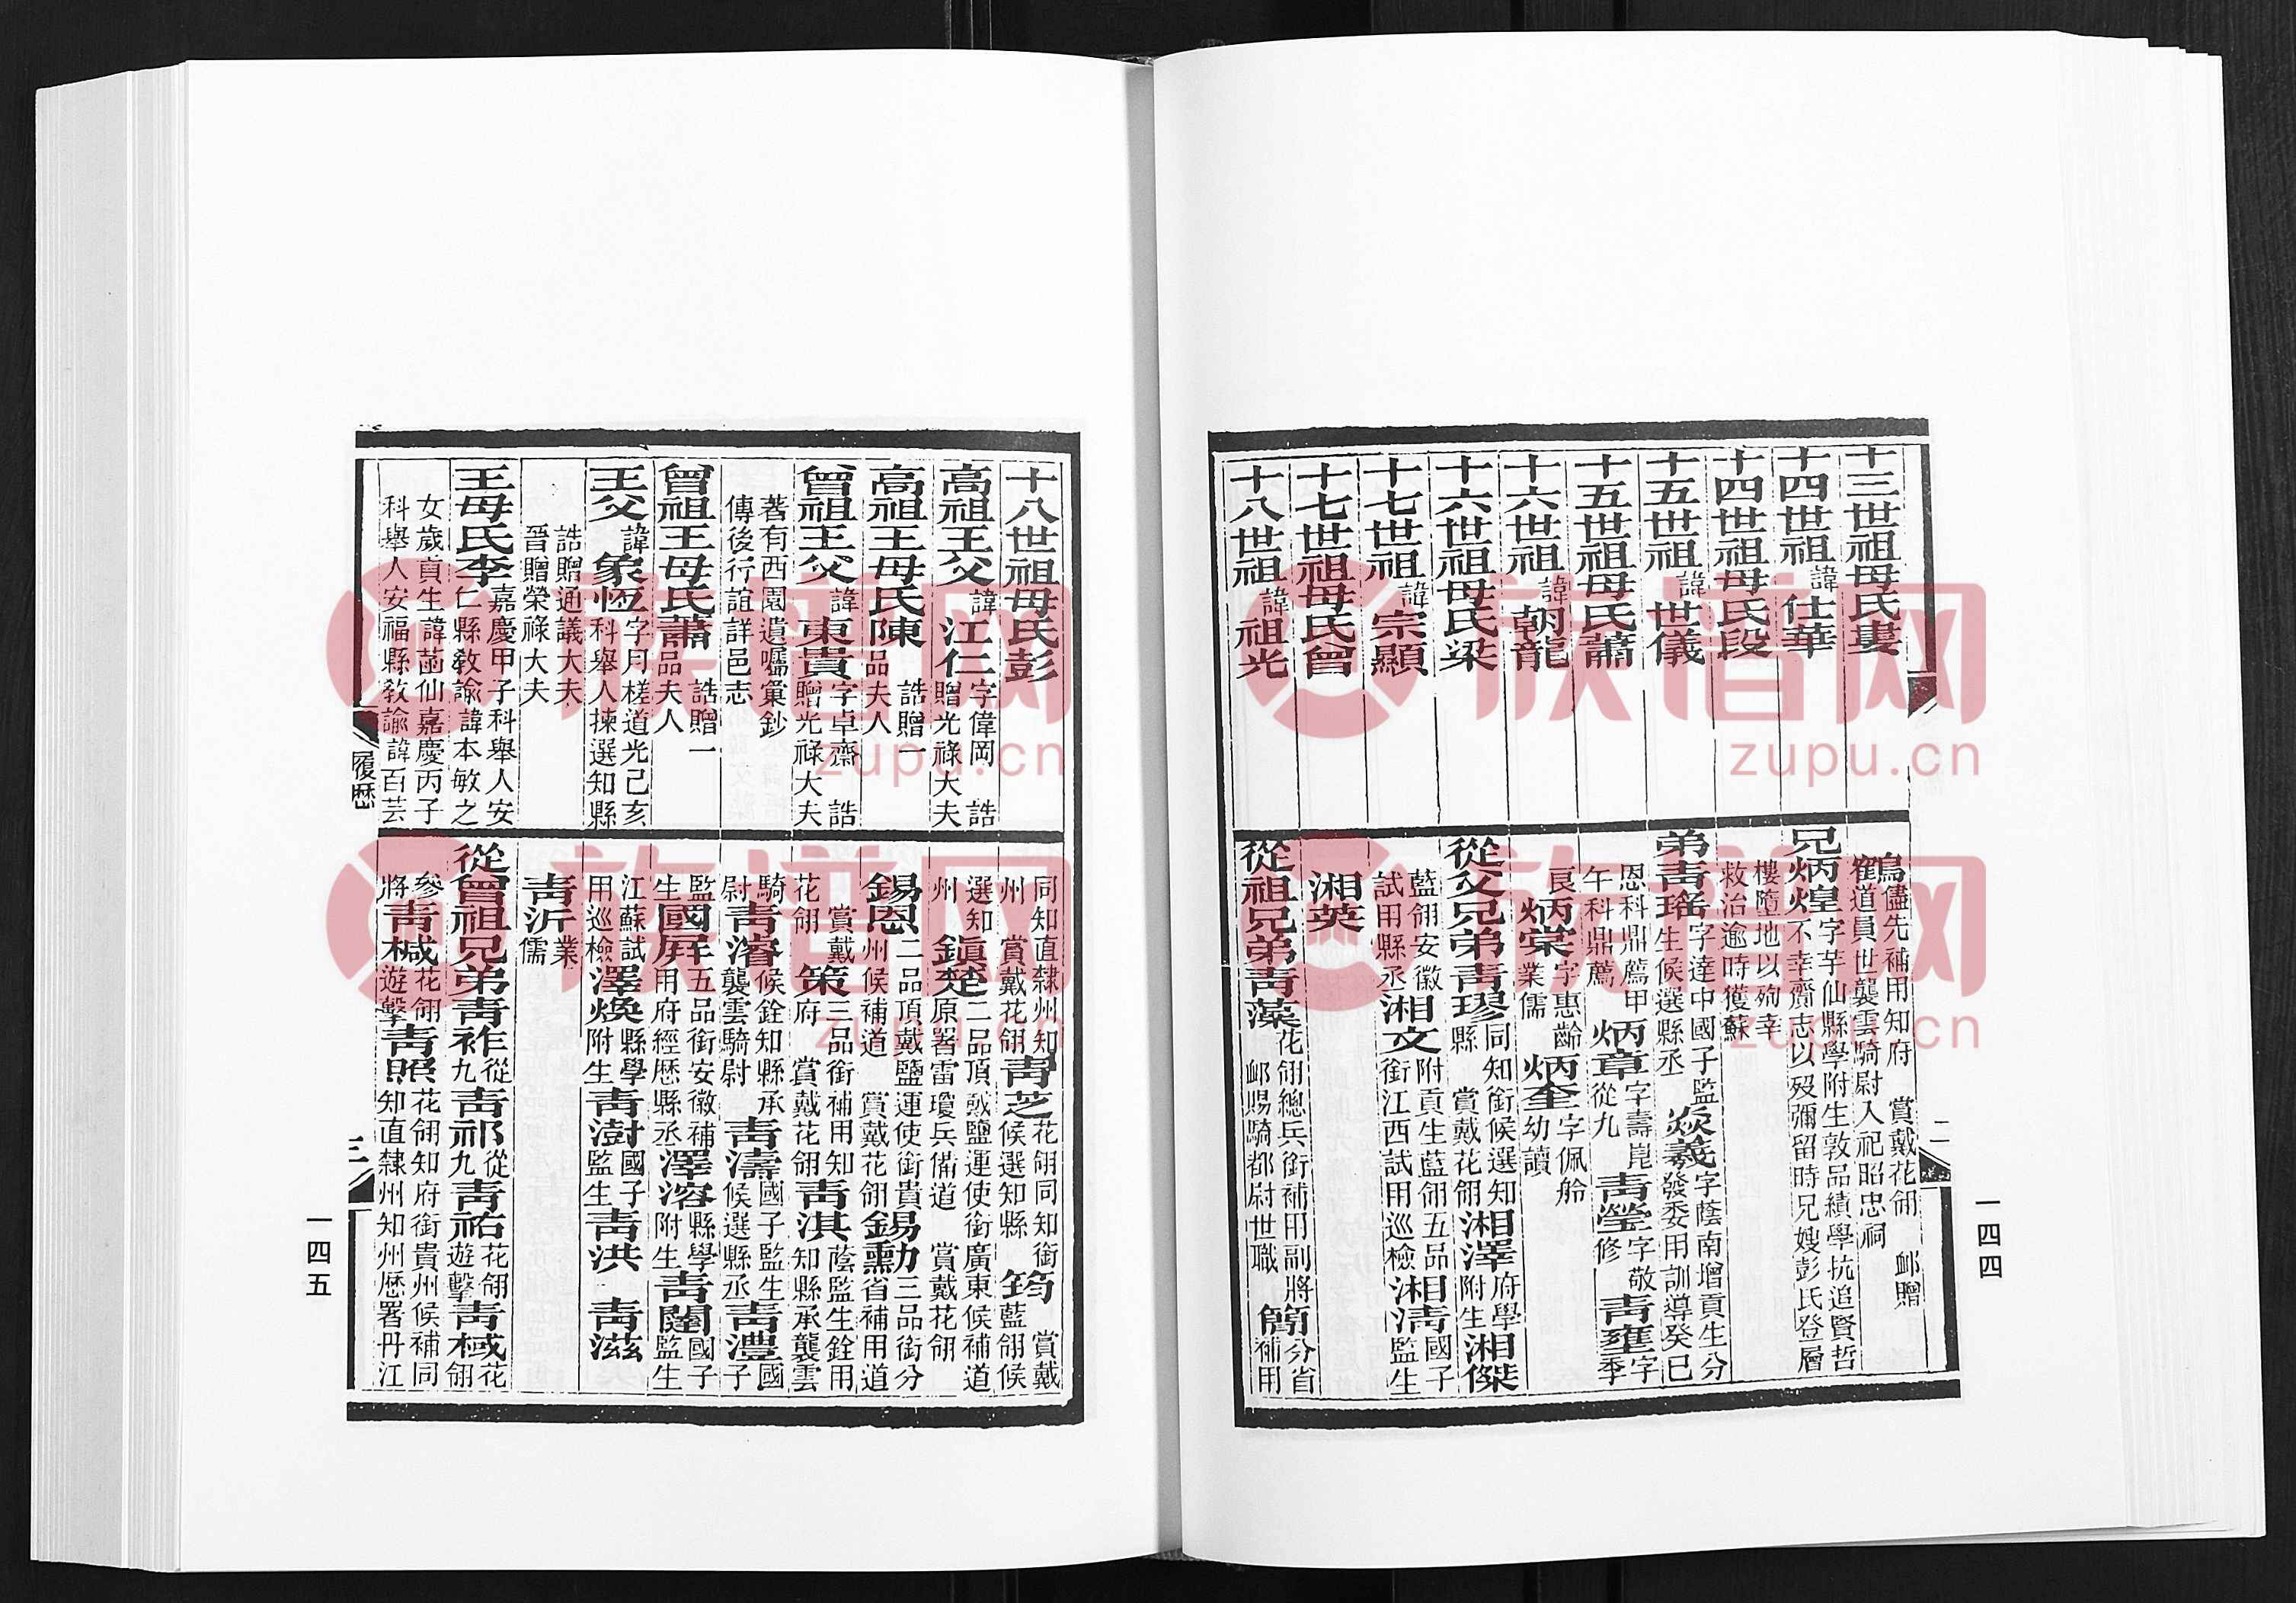 十三世祖母氏婁
十四世祖諱仕華
十四世祖母氏段
十五世祖諱世儀
十五世祖母氏蕭
十六世祖諱朝龍
十六世祖母氏梁
十七世祖諱宗顯
十七世祖母氏曾
十八世祖諱祖光
鶴儘先補用知府 賞戴花翎 卹贈
道員世襲雲騎尉入祀昭忠祠
兄炳煌字芋仙縣學附生敦品績學抗追賢哲
不幸齎志以歿彌留時兄嫂彭氏登層
樓墮地以殉幸
救治逾時獲蘇
弟青瑤字達中國子監生候選縣丞 焱羲字蔭南增貢生分發委用訓導癸巳
恩科鼎薦甲午科鼎薦 炳章字壽崑從九 青瑩字敬修 青蓮字季
良 炳棠字惠齡業儒 炳奎字佩舲幼讀
從父兄弟青璆同知銜候選知縣 賞戴花翎 湘澤府學附生 湘傑
藍翎安徽試用縣丞 湘文附貢生藍翎五品銜江西試用巡檢 湘清國子監生
湘英
從祖兄弟青藻花翎總兵銜補用副將 卹賜騎都尉世職 簡分省補用
二
一四四
十八世祖母氏彭
高祖王父諱江仁字偉岡 誥贈光祿大夫
高祖王母氏陳 誥贈一品夫人
曾祖王父諱東貴字卓齋 誥贈光祿大夫
著有西園遺囑彙鈔
傳後行誼詳邑志
曾祖王母氏蕭 誥贈一品夫人
王父諱象恆字月槎道光己亥科舉人揀選知縣
誥贈通議大夫
晉贈榮祿大夫
王母氏李嘉慶甲子科舉人安仁縣敎諭諱本敏之
女歲貢生諱菡仙嘉慶丙子
科舉人安福縣敎諭諱百芸
同知直隸州知州 賞戴花翎 青芝花翎同知銜候選知縣 筠 賞戴藍翎候
選知州 鎮楚二品頂戴鹽運使銜廣東候補道原署雷瓊兵備道 賞戴花翎
錫恩二品頂戴鹽運使銜貴州候補道 賞戴花翎 錫勳三品銜分省補用道
賞戴花翎 策三品銜補用知府 賞戴花翎 青淇蔭監生銓用知縣承襲雲
騎尉 青濬候銓知縣承襲雲騎尉 青濤國子監生候選縣丞 青灃國子
監生 國屏五品銜安徽補用府經歷縣丞 澤溶縣學附生 青闓國子監生
江蘇試用巡檢 澤煥縣學附生 青澍國子監生 青洪 青滋
青沂業儒
從曾祖兄弟青祚從九 青祁從九 青祐花翎遊擊 青棫花翎
參將 青椷花翎遊擊 青照花翎知府銜貴州候補同知直隸州知州歷署丹江
履歷
三
一四五
族谱网
zupu.cn
族谱网
zupu.cn
族谱网
zupu.cn
族谱网
zupu.cn